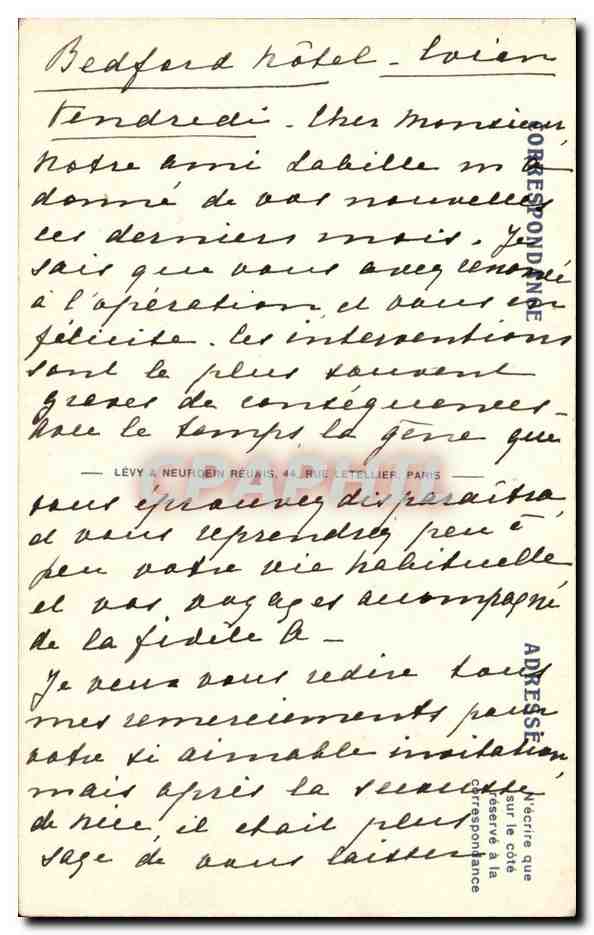 Bedford hôtel - Evian
Vendredi - Cher Monsieur,
Notre ami Labille m'a
donné de vos nouvelles
ces derniers mois. Je
sais que vous avez renoncé
à l'opération, et vous en
félicite. Les interventions
sont le plus souvent
graves de conséquences -
Avec le temps la gêne que
LÉVY & NEURDEIN RÉUNIS, 44, RUE LETELLIER, PARIS
CPAPHIL
vous éprouvez disparaîtra
et vous reprendrez peu à
peu votre vie habituelle
et vos voyages accompagné
de la fidèle A -
Je veux vous redire tous
mes remerciements pour
votre si aimable invitation,
mais après la secousse
de Nice, il était plus
sage de vous laisser
CORRESPONDANCE
ADRESSE
N'écrire que
sur le côté
réservé à la
correspondance